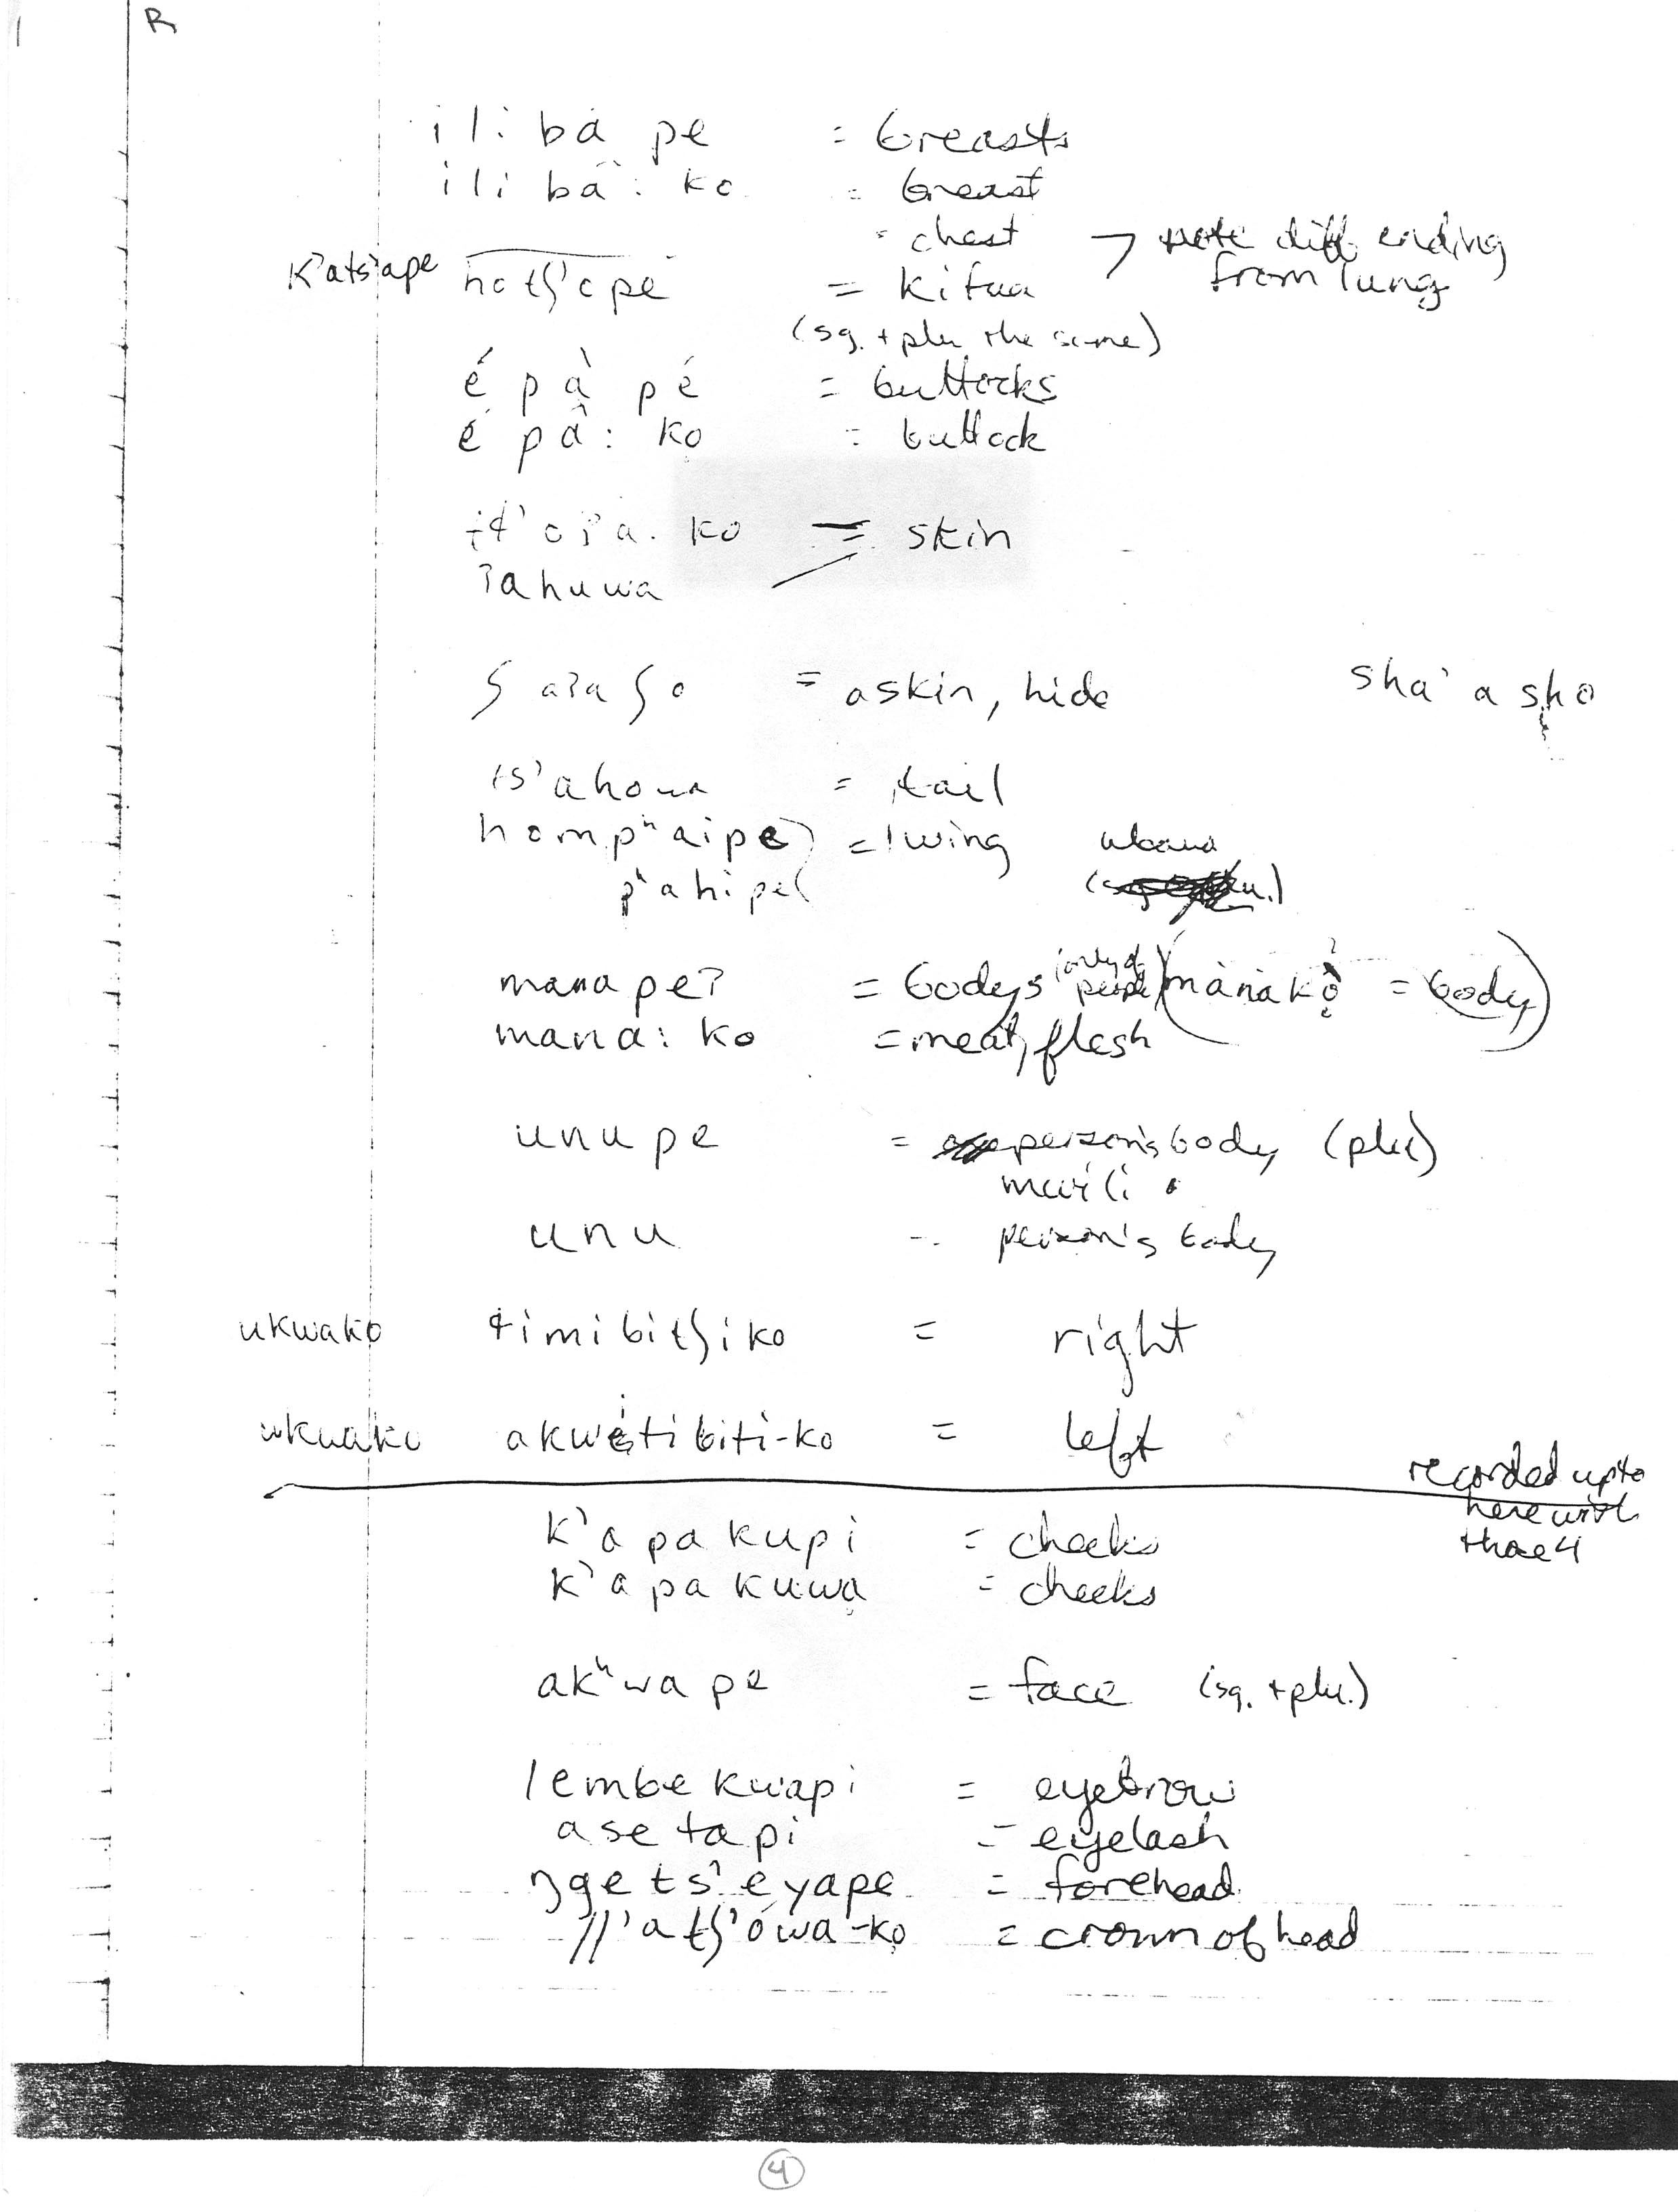 R
ilibá pe = breasts
ilibâ: ko = breast
= chest → note diff ending
K'ats'ape hatʃ'ape = kifua from lung
(sg. + plu the same)
é pà pé = buttocks
é pâ: ko = buttock
ɬ'oʔa. ko = skin
ʔahuwa
ʃaʔaʃo = a skin, hide sha'asho
ts'ahowa = tail
hompʰaipe) = 1 wing ubawa
pʰahipe(
manapeʔ = bodys (only of people) (mànàkò = body)
mana: ko = meat, flesh
unupe = person's body (plu)
mwili
unu = person's body
ukwako ɬimibitʃiko = right
ukwako akwitibiti-ko = left
recorded up to
here with
those 4
K'apakupi = cheeks
K'apakuwa = cheeks
akʰwape = face (sg. + plu.)
lembekwapi = eyebrow
asetapi = eyelash
ŋgets'eyape = forehead
//'atʃ'ówa-ko = crown of head
4